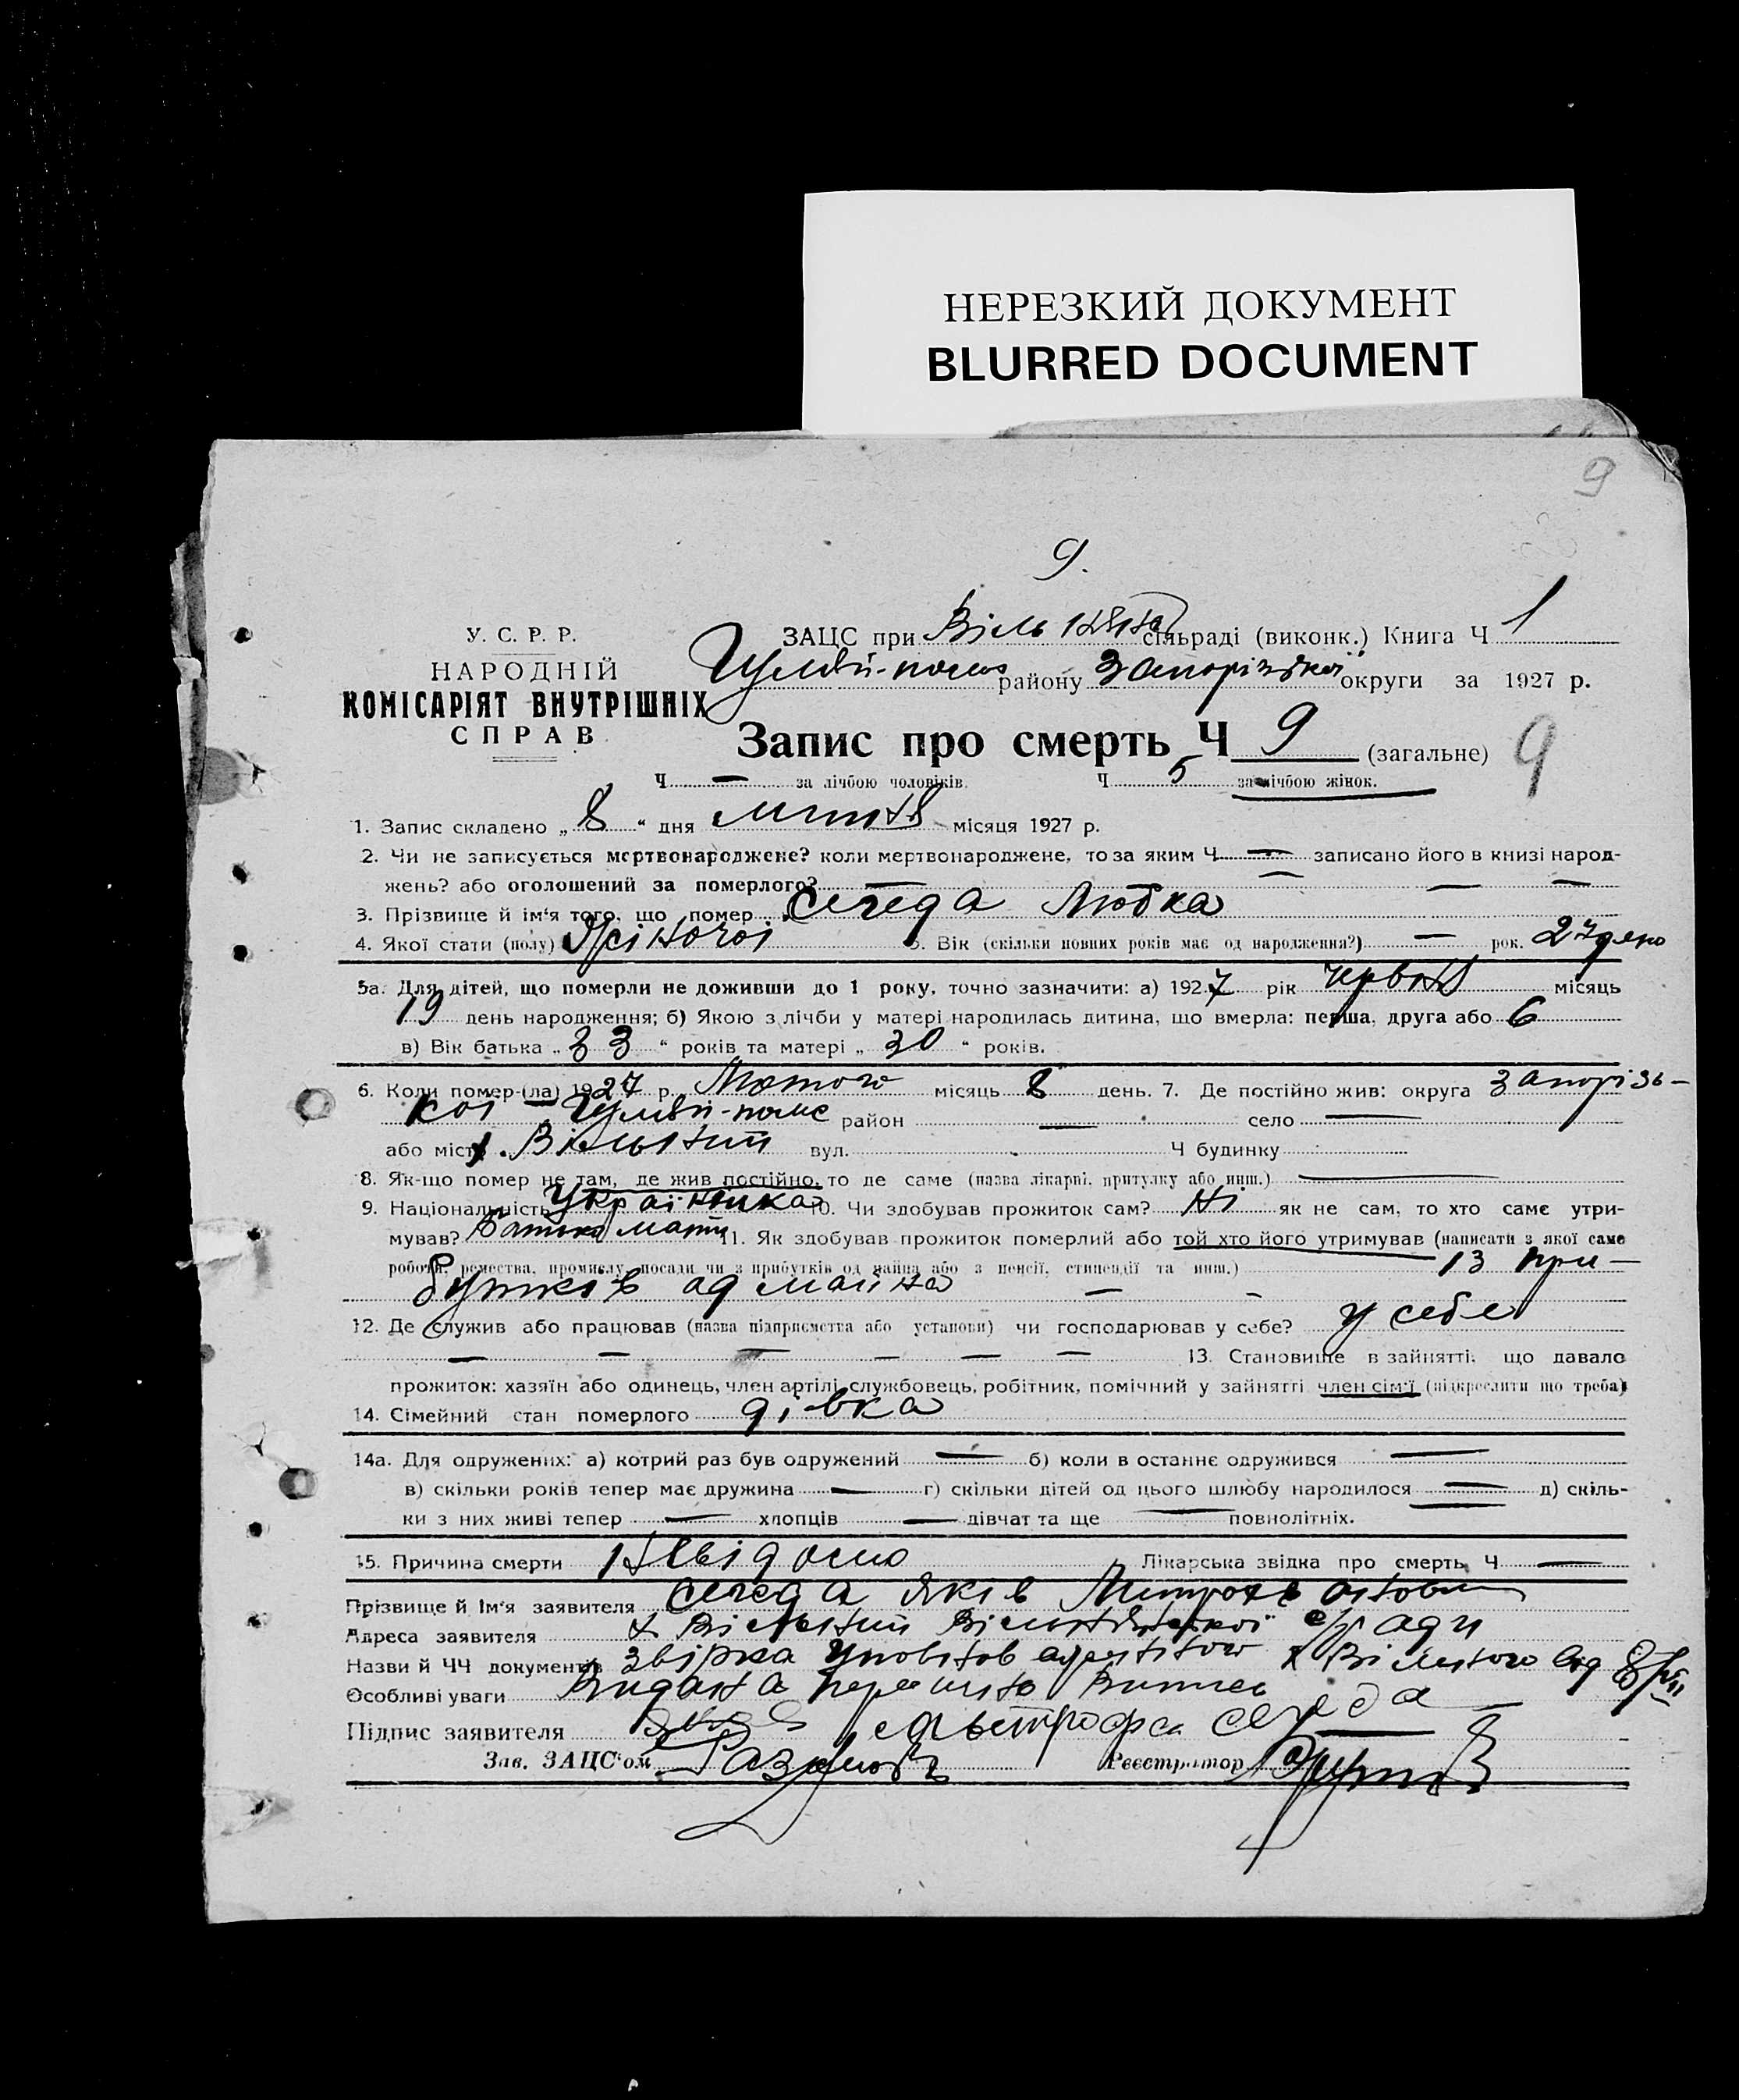 НЕРЕЗКИЙ ДОКУМЕНТ
BLURRED DOCUMENT
9
9.
У. С. Р. Р.
НАРОДНІЙ
КОМІСАРІЯТ ВНУТРІШНІХ
СПРАВ
ЗАЦС при сільраді (виконк.) Книга Ч 1
Гуляй-поле району Запорізької округи за 1927 р.
Запис про смерть Ч 9 (загальне) 9
Ч — за лічбою чоловіків. Ч 5 за лічбою жінок.
1. Запис складено „ 8 “ дня місяця 1927 р.
2. Чи не записується мертвонароджене? коли мертвонароджене, то за яким Ч — записано його в книзі народ-
жень? або оголошений за померлого? — — — —
3. Прізвище й ім'я того, що помер Середа Любка
4. Якої стати (полу) Жіночої 5. Вік (скільки повних років має од народження?) — рок. 27 днів
5а. Для дітей, що померли не доживши до 1 року, точно зазначити: а) 1927 рік місяць
19 день народження; б) Якою з лічби у матері народилась дитина, що вмерла: перша, друга або 6
в) Вік батька „ 33 “ років та матері „ 30 “ років.
6. Коли помер-(ла) 1927 р. Лютого місяць 8 день. 7. Де постійно жив: округа Запорізь-
кої — Гуляй-поле район — село —
або місто х. Вільний вул. Ч будинку
8. Як-що помер не там, де жив постійно, то де саме (назва лікарні, притулку або инш.) —
9. Національність Українка 10. Чи здобував прожиток сам? Ні як не сам, то хто саме утри-
мував? Батько мати 11. Як здобував прожиток померлий або той хто його утримував (написати з якої саме
роботи, ремества, промислу, посади чи з прибутків од майна або з пенсії, стипендії та инш.) Із при-
бутків од майна — -
12. Де служив або працював (назва підприємства або установи) чи господарював у себе? у себе
— — — — — — 13. Становище в зайнятті, що давало
прожиток: хазяїн або одинець, член артілі, службовець, робітник, помічний у зайнятті член сім'ї (підкреслити що треба)
14. Сімейний стан померлого дівка
14а. Для одружених: а) котрий раз був одружений — б) коли в останнє одружився —
в) скільки років тепер має дружина — г) скільки дітей од цього шлюбу народилося — д) скіль-
ки з них живі тепер — хлопців — дівчат та ще — повнолітніх.
15. Причина смерти Невідомо Лікарська звідка про смерть Ч —
Прізвище й Ім'я заявителя Середа Яків Митрофанович
Адреса заявителя х Вільний с/ради
Назви й ЧЧ документів х Вільного від
Особливі уваги Видана Випись
Підпис заявителя Середа
Зав. ЗАЦС'ом Реєстратор